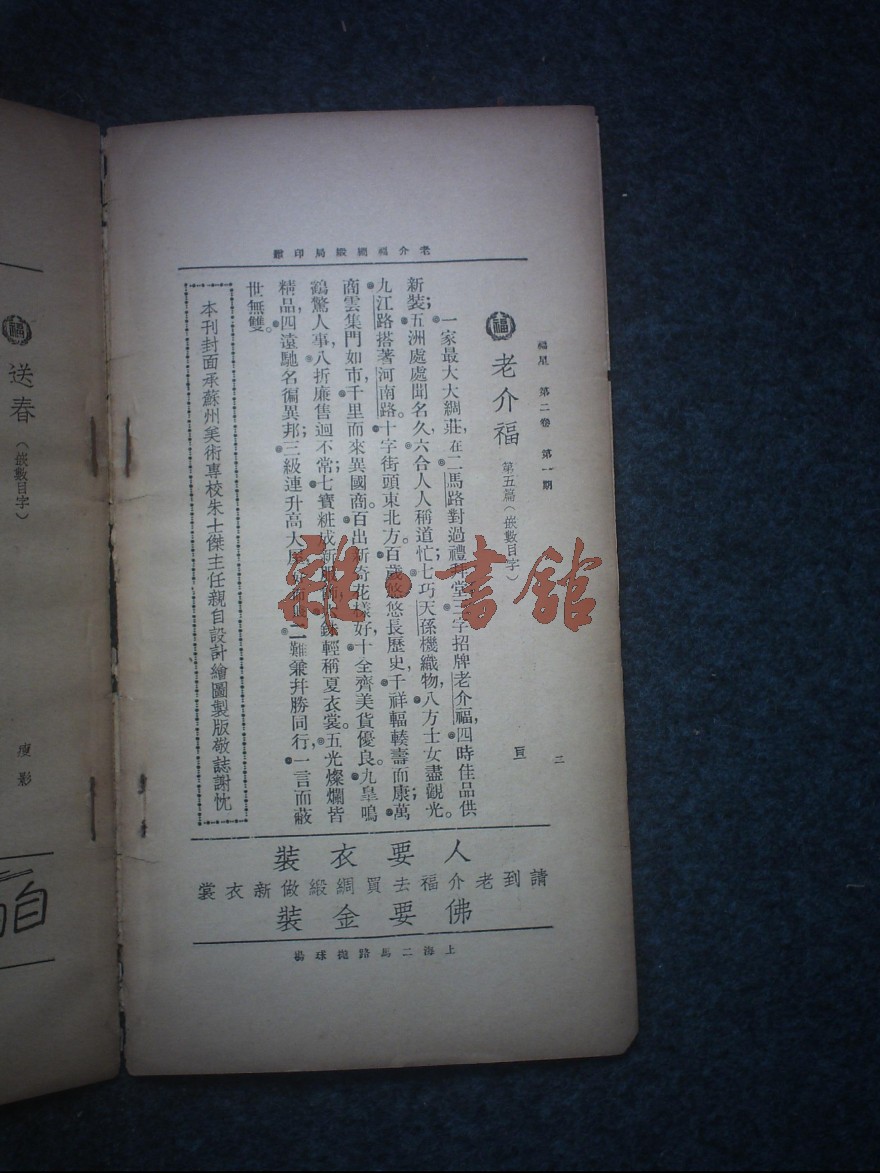 福星 第二卷 第一期
二
福
老介福 第五篇(嵌數目字)
一家最大大綢莊,在二馬路對過禮拜堂三字招牌老介福,四時佳品供
新裝;五洲處處聞名久,六合人人稱道忙;七巧天孫機織物,八方士女盡觀光。
九江路搭著河南路。十字街頭東北方。百歲悠悠長歷史,千祥輻輳壽而康;萬
商雲集門如市,千里而來異國商。百出新奇花樣好,十全齊美貨優良。九臯鳴
鶴驚人事,八折廉售迥不常;七寶粧成新 輕稱夏衣裳。五光燦爛皆
精品,四遠馳名徧異邦;三級連升高大 二難兼幷勝同行,一言而蔽
世無雙。
本刊封面承蘇州美術專校朱士傑主任親自設計繪圖製版敬誌謝忱
老介福綢緞局印贈
人要衣裝
請到老介福去買綢緞做新衣裳
佛要金裝
上海二馬路拋球場
雜·書館
福
送春(嵌數目字)
庾影